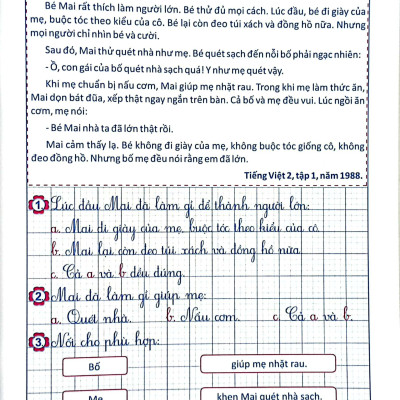 Bé Mai rất thích làm người lớn. Bé thử đủ mọi cách. Lúc đầu, bé đi giày của
mẹ, buộc tóc theo kiểu của cô. Bé lại còn đeo túi xách và đồng hồ nữa. Nhưng
mọi người chỉ nhìn bé và cười.
Sau đó, Mai thử quét nhà như mẹ. Bé quét sạch đến nỗi bố phải ngạc nhiên:
- Ồ, con gái của bố quét nhà sạch quá! Y như mẹ quét vậy.
Khi mẹ chuẩn bị nấu cơm, Mai giúp mẹ nhặt rau. Trong khi mẹ làm thức ăn,
Mai dọn bát đũa, xếp thật ngay ngắn trên bàn. Cả bố và mẹ đều vui. Lúc ngồi ăn
cơm, mẹ nói:
- Bé Mai nhà ta đã lớn thật rồi.
Mai cảm thấy lạ. Bé không đi giày của mẹ, không buộc tóc giống cô, không
đeo đồng hồ. Nhưng bố mẹ đều nói rằng em đã lớn.
Tiếng Việt 2, tập 1, năm 1988.
1 Lúc đầu Mai đã làm gì để thành người lớn:
a. Mai đi giày của mẹ, buộc tóc theo kiểu của cô.
b. Mai lại còn đeo túi xách và đồng hồ nữa.
c. Cả a và b đều đúng.
2 Mai đã làm gì giúp mẹ:
a. Quét nhà. b. Nấu cơm. c. Cả a và b.
3 Nối cho phù hợp:
Bố giúp mẹ nhặt rau.
Mẹ khen Mai quét nhà sạch.